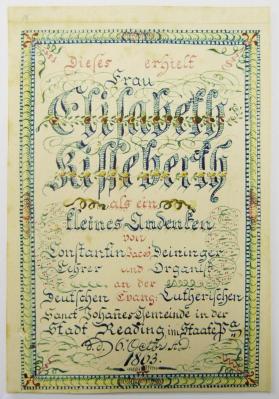 Dieses erhielt
Frau
Elisabeth
Kisseberth
als ein
kleines Andenken
von
Constantin Jacob Deininger
Lehrer und Organist
an der
Deutschen Evang: Lutherischen
Sanct Johanes Gemeinde in der
Stadt Reading im Staate Pa
d. 6 October AD
1863.